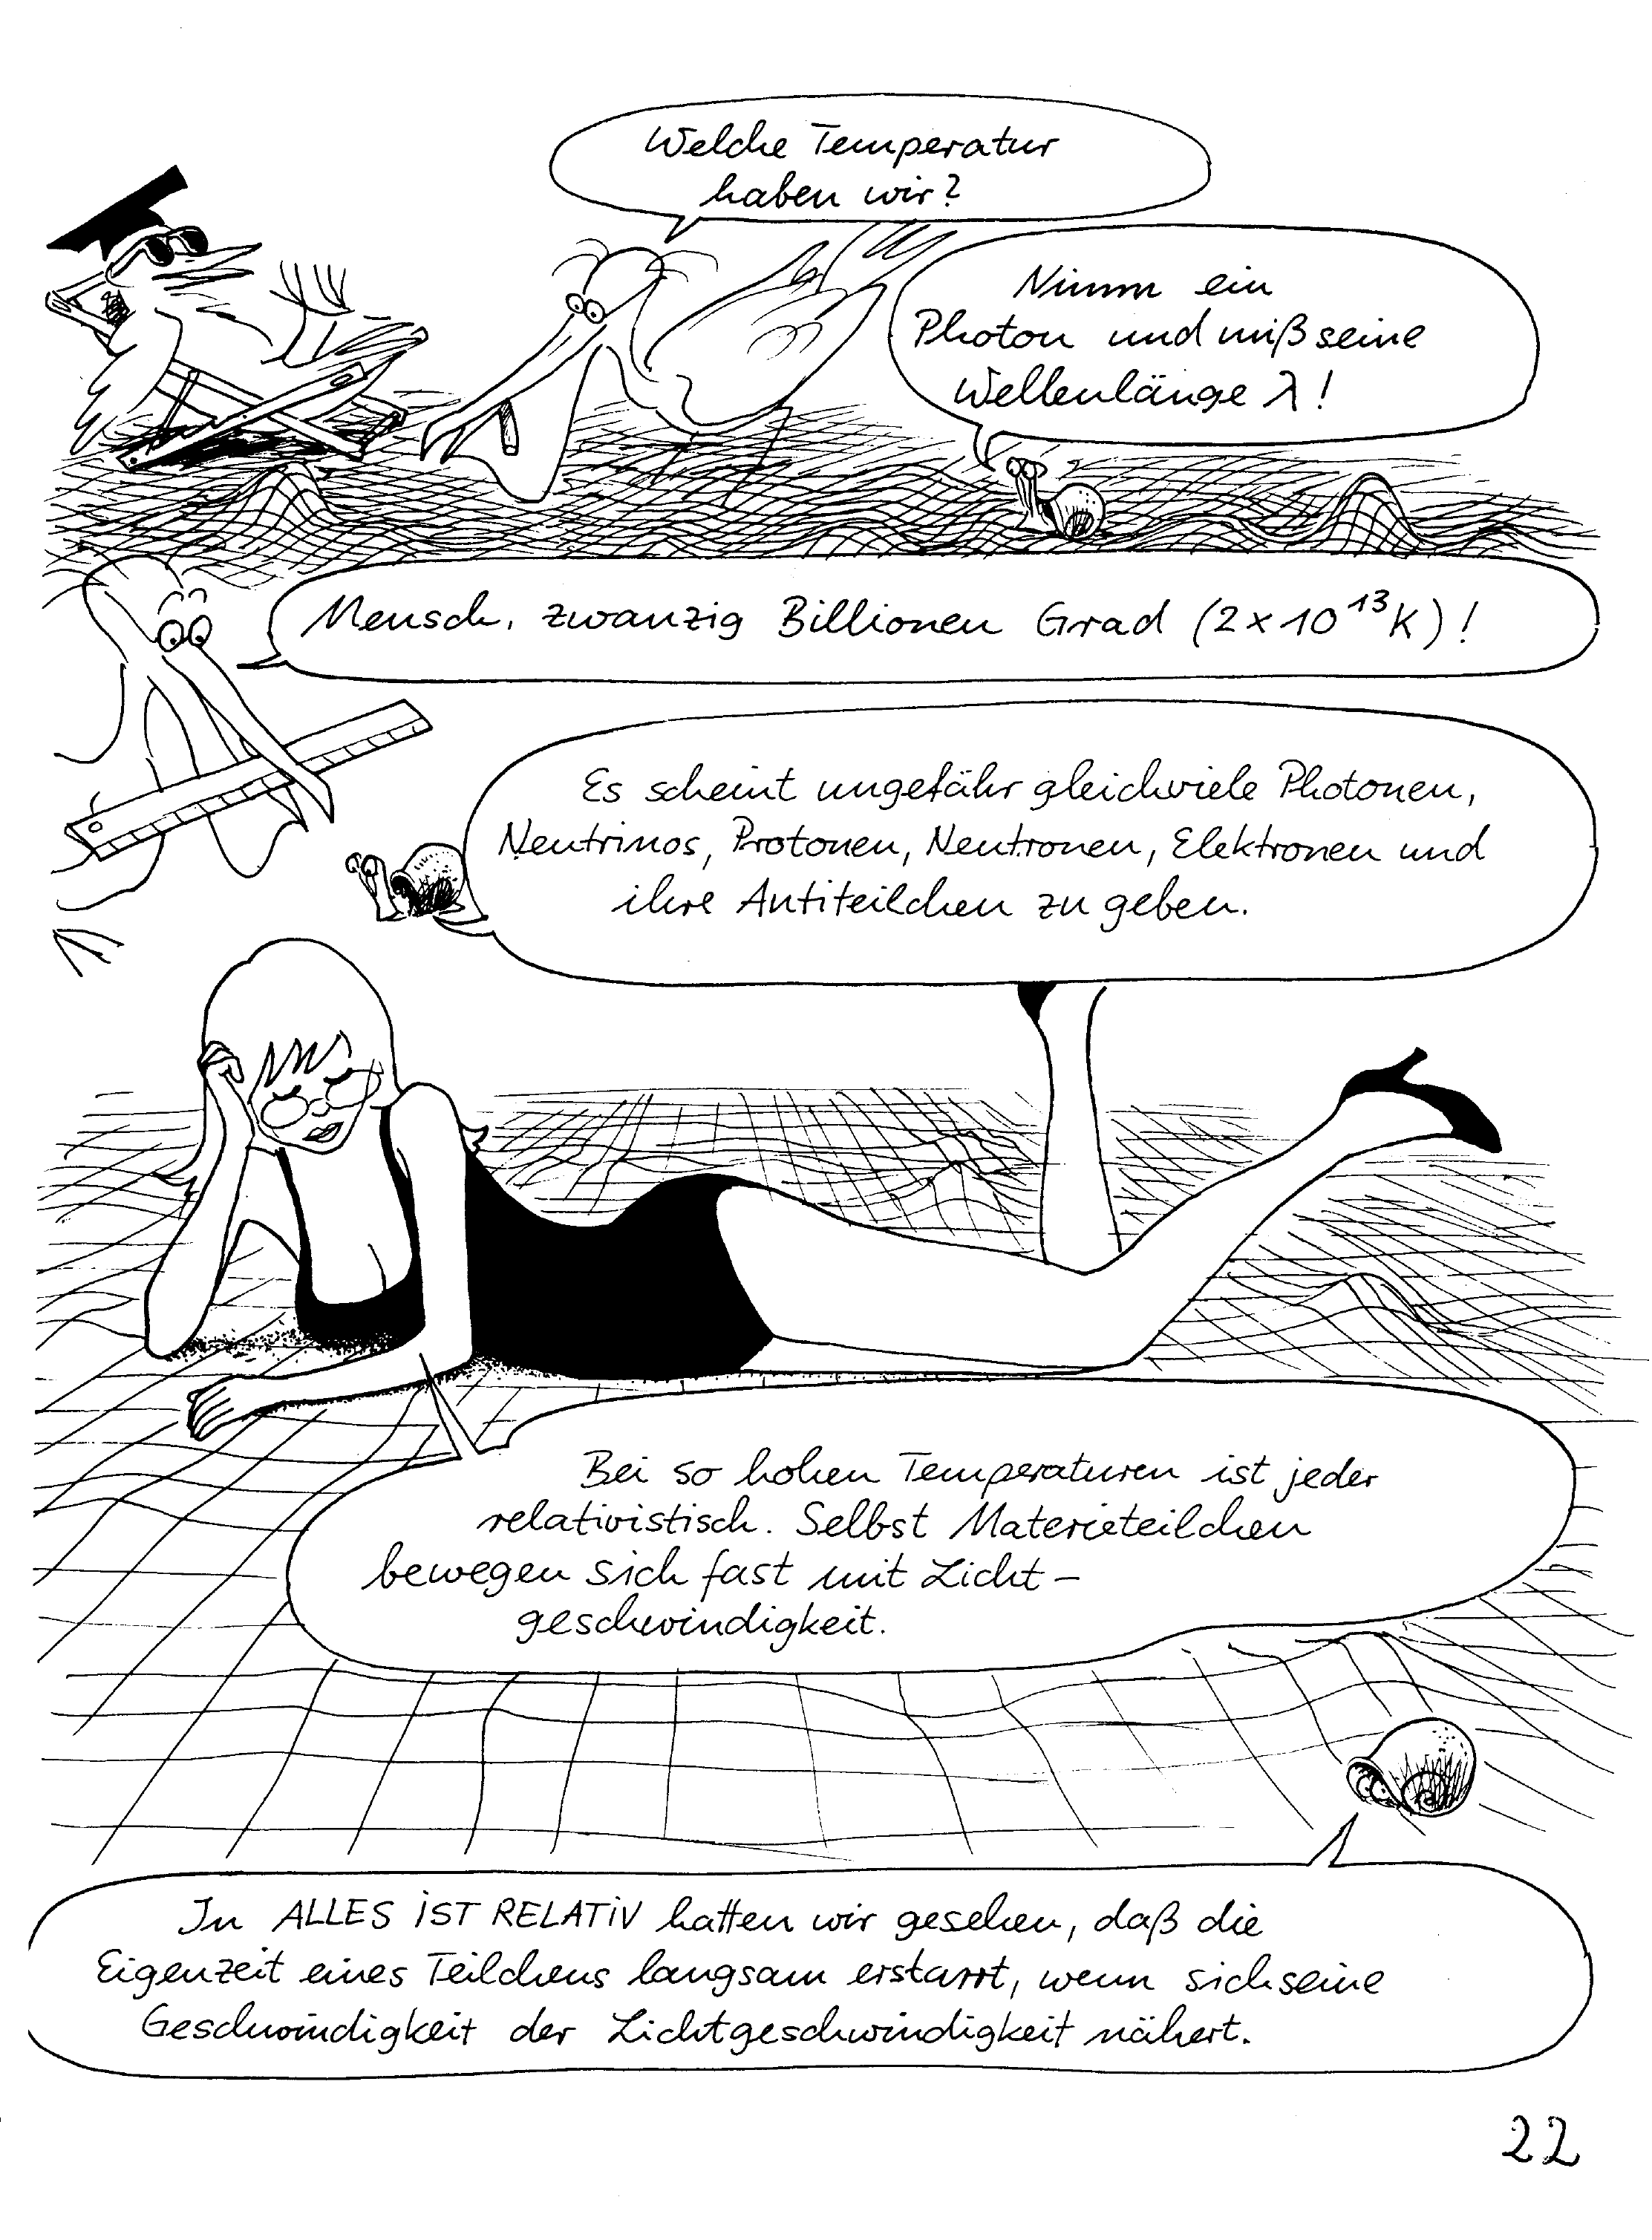 Welche Temperatur
haben wir?
Nimm ein
Photon und miß seine
Wellenlänge λ!
Mensch, zwanzig Billionen Grad (2 x 10¹³ K)!
Es scheint ungefähr gleichviele Photonen,
Neutrinos, Protonen, Neutronen, Elektronen und
ihre Antiteilchen zu geben.
Bei so hohen Temperaturen ist jeder
relativistisch. Selbst Materieteilchen
bewegen sich fast mit Licht-
geschwindigkeit.
In ALLES iST RELATiV hatten wir gesehen, daß die
Eigenzeit eines Teilchens langsam erstarrt, wenn sich seine
Geschwindigkeit der Lichtgeschwindigkeit nähert.
22